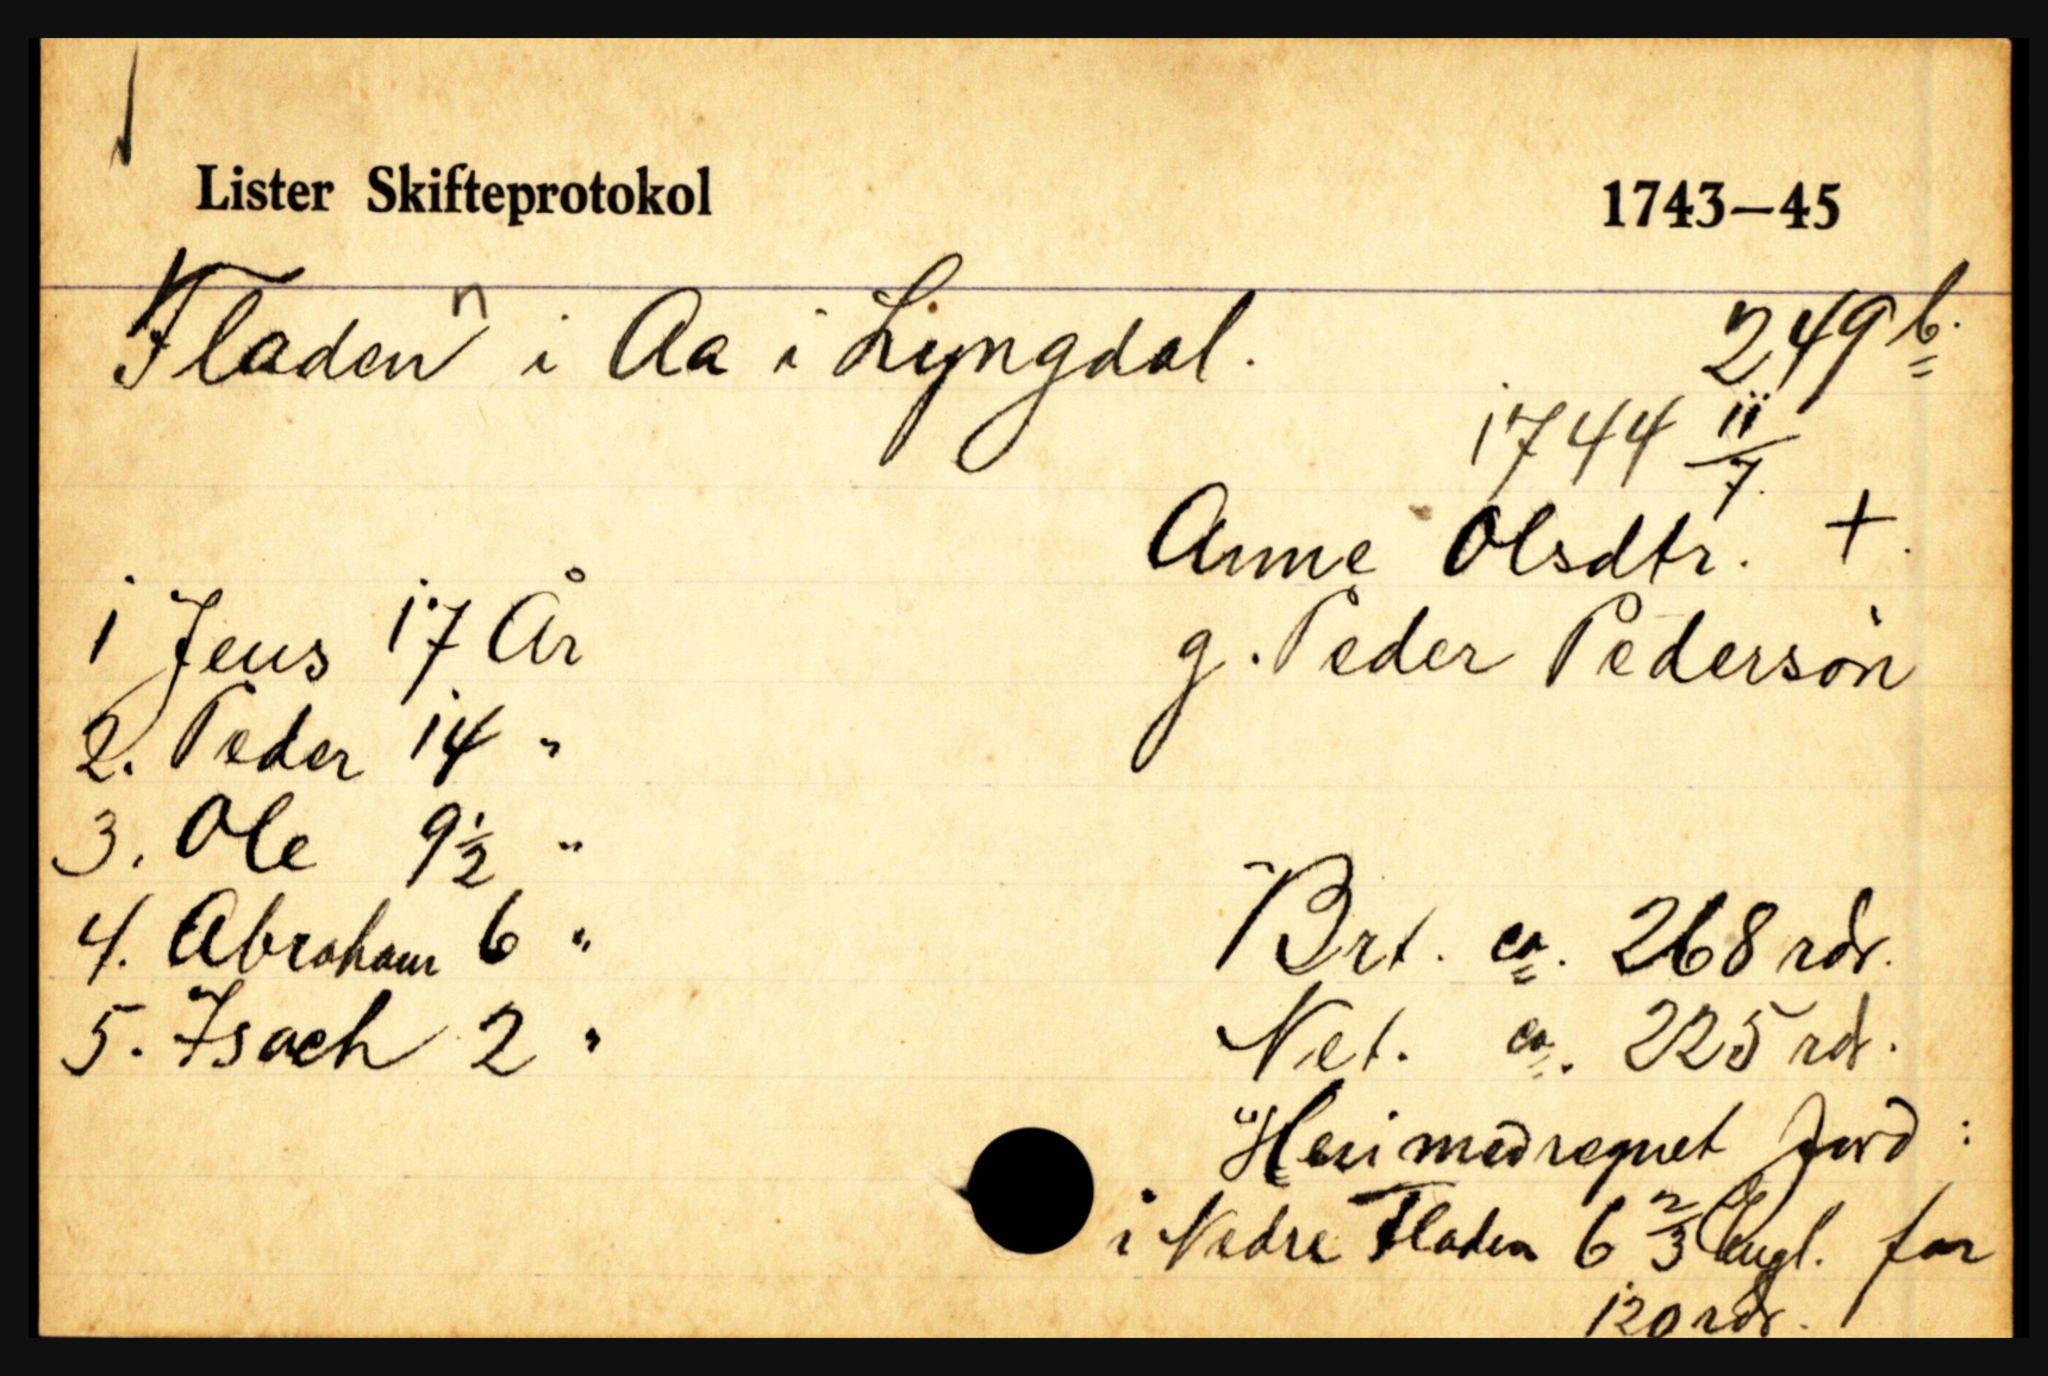 Lister Skifteprotokol 1743—45
Fladen n i Aa i Lyngdal. 249 b.
1744 11/7.
Anne Olsdtr. +.
1 Jens 17 År g. Peder Pedersøn
2. Peder 14 "
3. Ole 9 1/2 "
4. Abraham 6 " Brt. ca. 268 rdr.
5. Isach 2 " Net. ca. 225 rdr.
Heri medregnet Jord :
i Nedre Fladen 6 2/3 Engl. for
120 rdr.